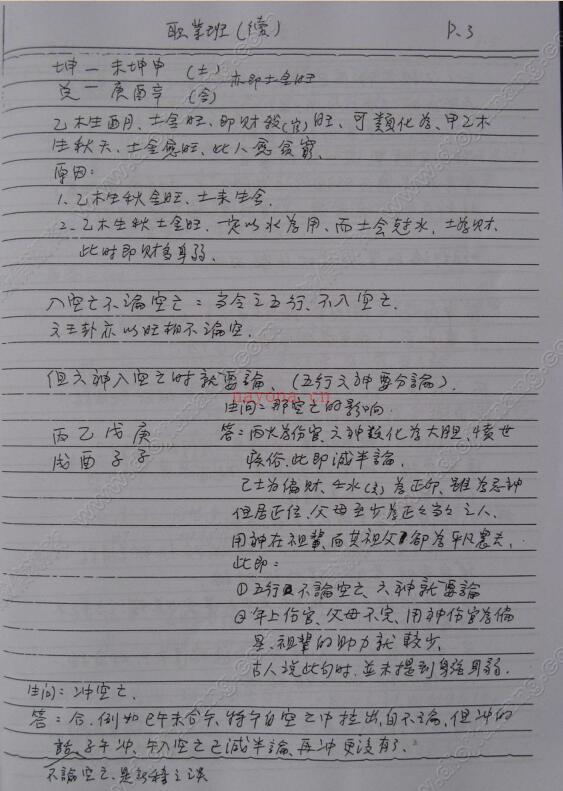 职業班(續) P.3
坤一未坤申 (土) 亦即土金旺
兌一庚酉辛 (金)
乙木生酉月、土金旺、即财殺(官)旺、可類化為、甲乙木
生秋天、土金愈旺、此人愈貧窮、
原因:
1、乙木生秋金旺、土来生金、
2、乙木生秋土金旺、一定以水為用、而土會尅水、土為财
此時即财多身弱、
入空亡不論空亡=当令之五行、不入空亡、
文王卦亦以旺相不論空、
但六神入空亡時就要論、(五行六神要分論)、
nayona.cn
生问=那空亡的影响、
丙乙戊庚 答=丙火為伤官、六神類化為大胆、愤世
戌酉子子 疾俗、此即減半論、
己土為偏财、壬水(炁)為正印、雖為忌神
但居正位、父母至少為正正当当之人、
用神在祖輩、而其祖父卻為平凡農夫、
此即:
①五行不論空亡、六神就要論
②年上伤官、父母不完、用神伤官為偏
星、祖輩的助力就較少、
古人说此句時、並未提到身强身弱、
生问=冲空亡、
答=合、例如午未合午、特午自空亡中拉出、自不論、但冲的
話、子午冲、午入空亡己減半論、再冲更沒有了、
不論空亡、是新種之误